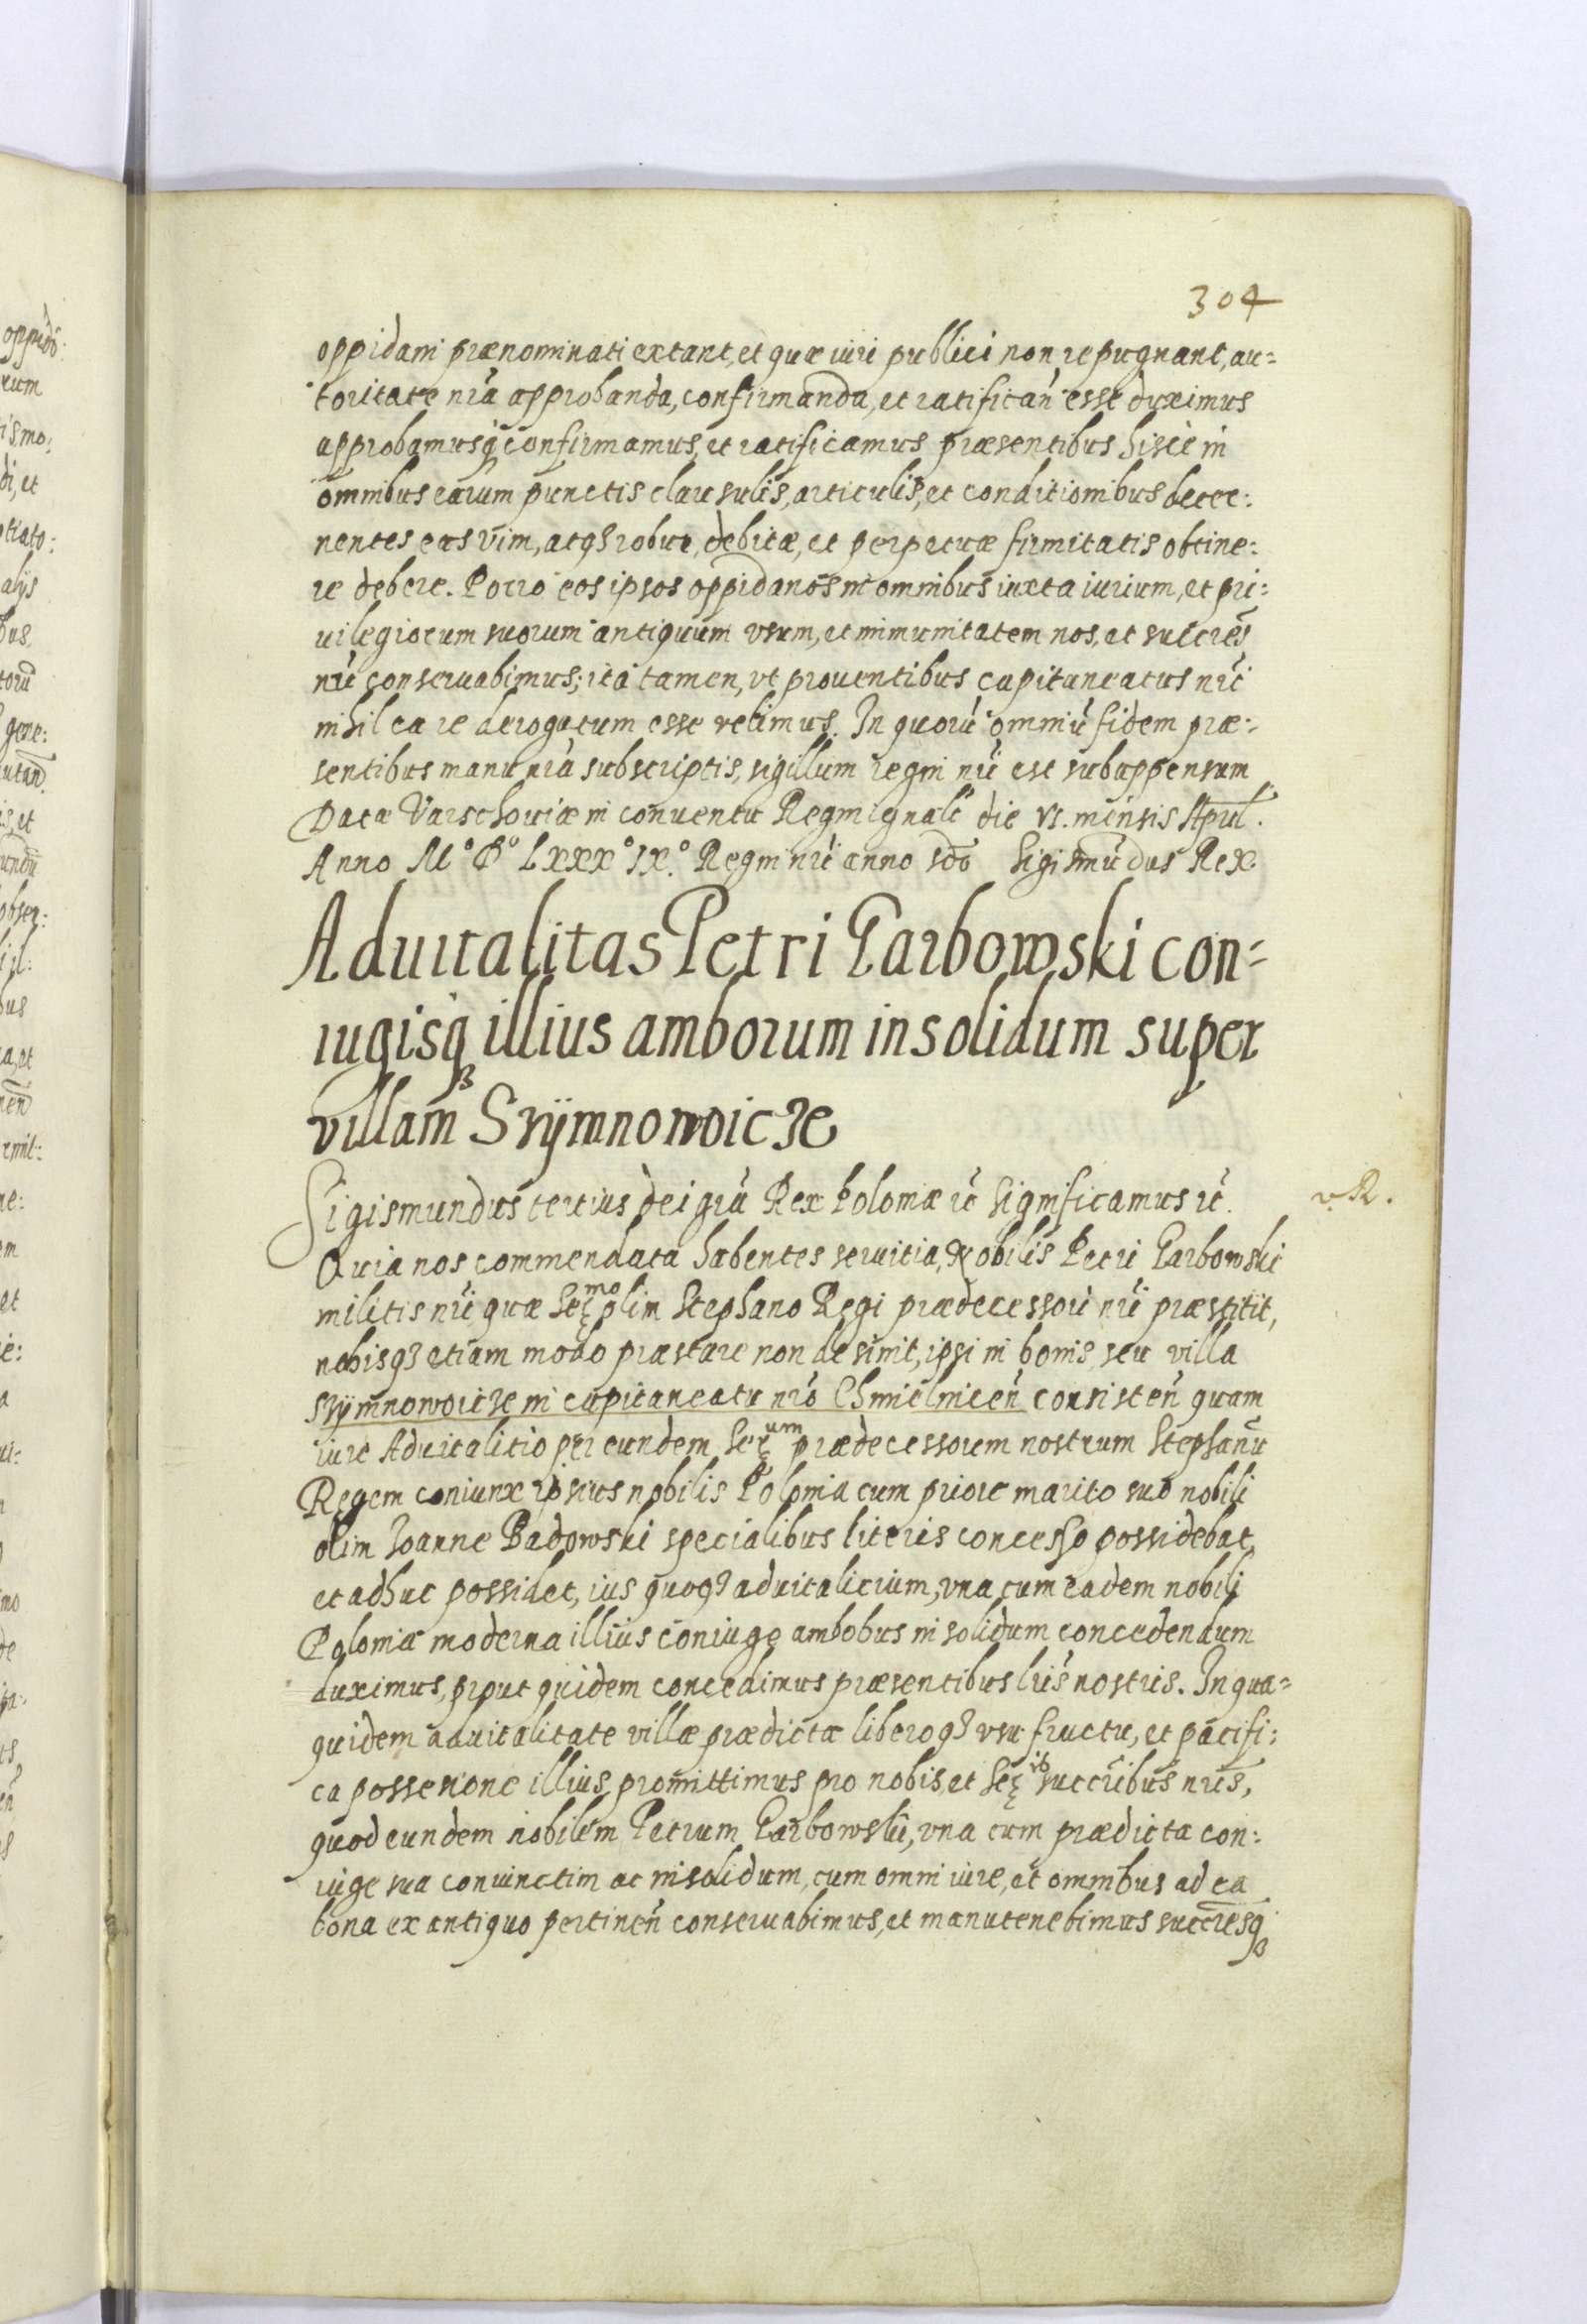 304
oppidani prænominati extant, et quæ iuri publici non repugnant, au=
toritate nrã approbanda, confirmanda, et ratificañ esse duximus
approbamusq; confirmamus, et ratificamus præsentibus hisce in
omnibus earum punctis clausulis, articulis, et conditionibus decer:
nentes eas vim, atq; robur, debitæ, et perpetuæ firmitatis obtine:
re debere. Porro eos ipsos oppidanos in omnibus iuxta iurium, et pri:
uilegiorum suorum antiquum vsum, et immunitatem nos, et succrẽs
nrĩ conseruabimus; ita tamen, vt prouentibus capitaneatus nrĩ
nihil ea re derogatum esse velimus. In quorũ omniũ fidem præ:
sentibus manu nrã subscriptis, sigillum regni nrĩ est subappensum
Datæ Varschouiæ in conuentu Regni gnali die VI. mensis Apríl.
Anno M° D° LXXX° IX.° Regni nrĩ anno sẽdo Sigismũdus Rex.
Aduitalitas Petri Garbowski con=
iugisq; illius amborum in solidum super
villam Srÿmnowoicze
Sigismundus tertius dei grã Rex Poloniæ ĩc Significamus ĩc.
v. R.
Quia nos commendata habentes seruitia, Nobilis Petri Garbowski
militis nrĩ, quæ Ser^mo olim Stephano Regi prædecessori nrĩ præstitit,
nobisq; etiam modo præstare non desinit, ipsi in bonis, seu villa
Srÿmnowoicze in capitaneatu nrõ Chmielniceñ consisteñ quam
iure Aduitalitio per eundem Ser^um prædecessorem nostrum Stephanũ
Regem coniunx ipsius nobilis Polonia cum priore marito suo nobili
olim Ioanne Badowski specialibus literis concesso possidebat,
et adhuc possidet, ius quoq; aduitalitium, vna cum eadem nobili
Polonia moderna illius coniuge ambobus in solidum concedendum
duximus, prout quidem concedimus præsentibus lrĩs nostris. In qua=
quidem aduitalitate villæ prædictæ liberoq; vsu fructu, et pacifi:
ca possesione illius, promittimus pro nobis, et Ser^ib succribus nrĩs,
quod eundem nobilem Petrum Garbowski, vna cum prædicta con:
iuge sua coniunctim ac in solidum, cum omni iure, et omnibus ad ea
bona ex antiquo pertineñ conseruabimus, et manutenebimus succresq;